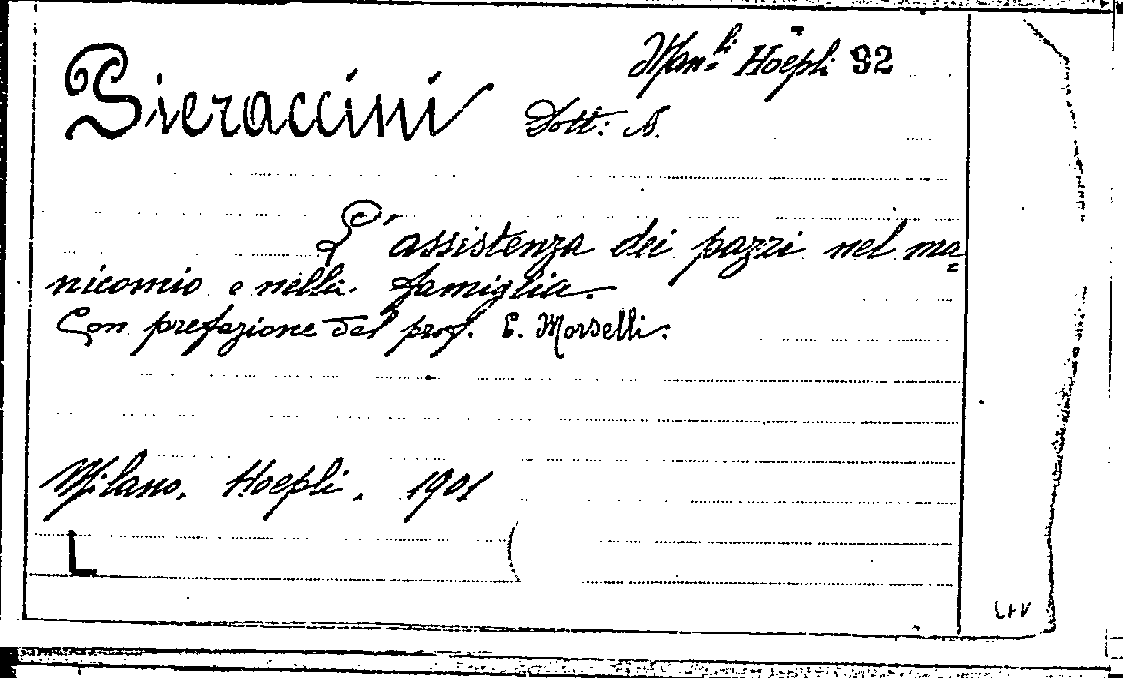 Man.li Hoepli 92
Pieraccini Dott: A.
L'assistenza dei pazzi nel ma=
nicomio e nella famiglia.
Con prefazione del prof. E. Morselli.
Milano. Hoepli. 1901
L